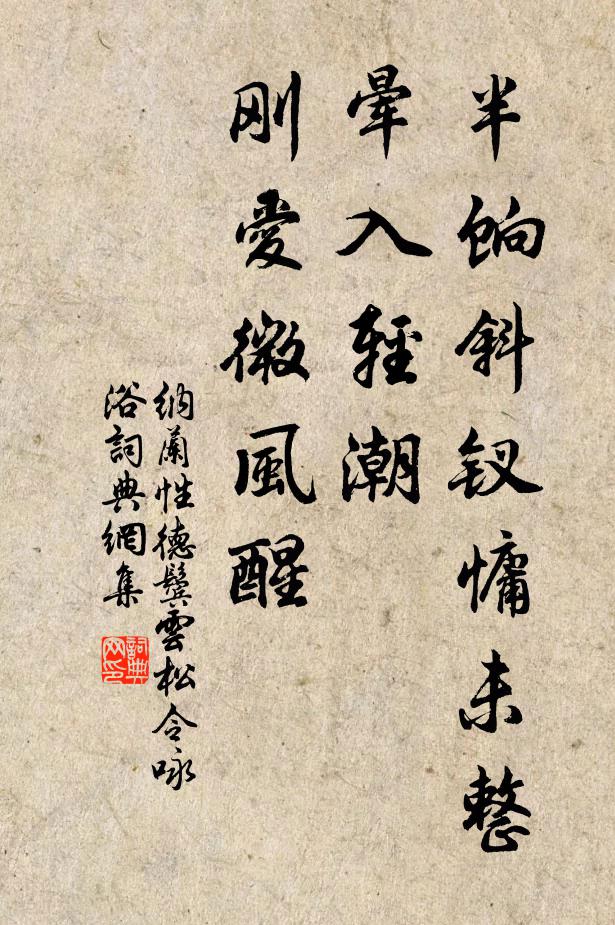 半饷斜钗慵未整
暈入輕潮
刚愛微風醒
納蘭性德鬓雲松令咏
浴詞典網集
詞典网印